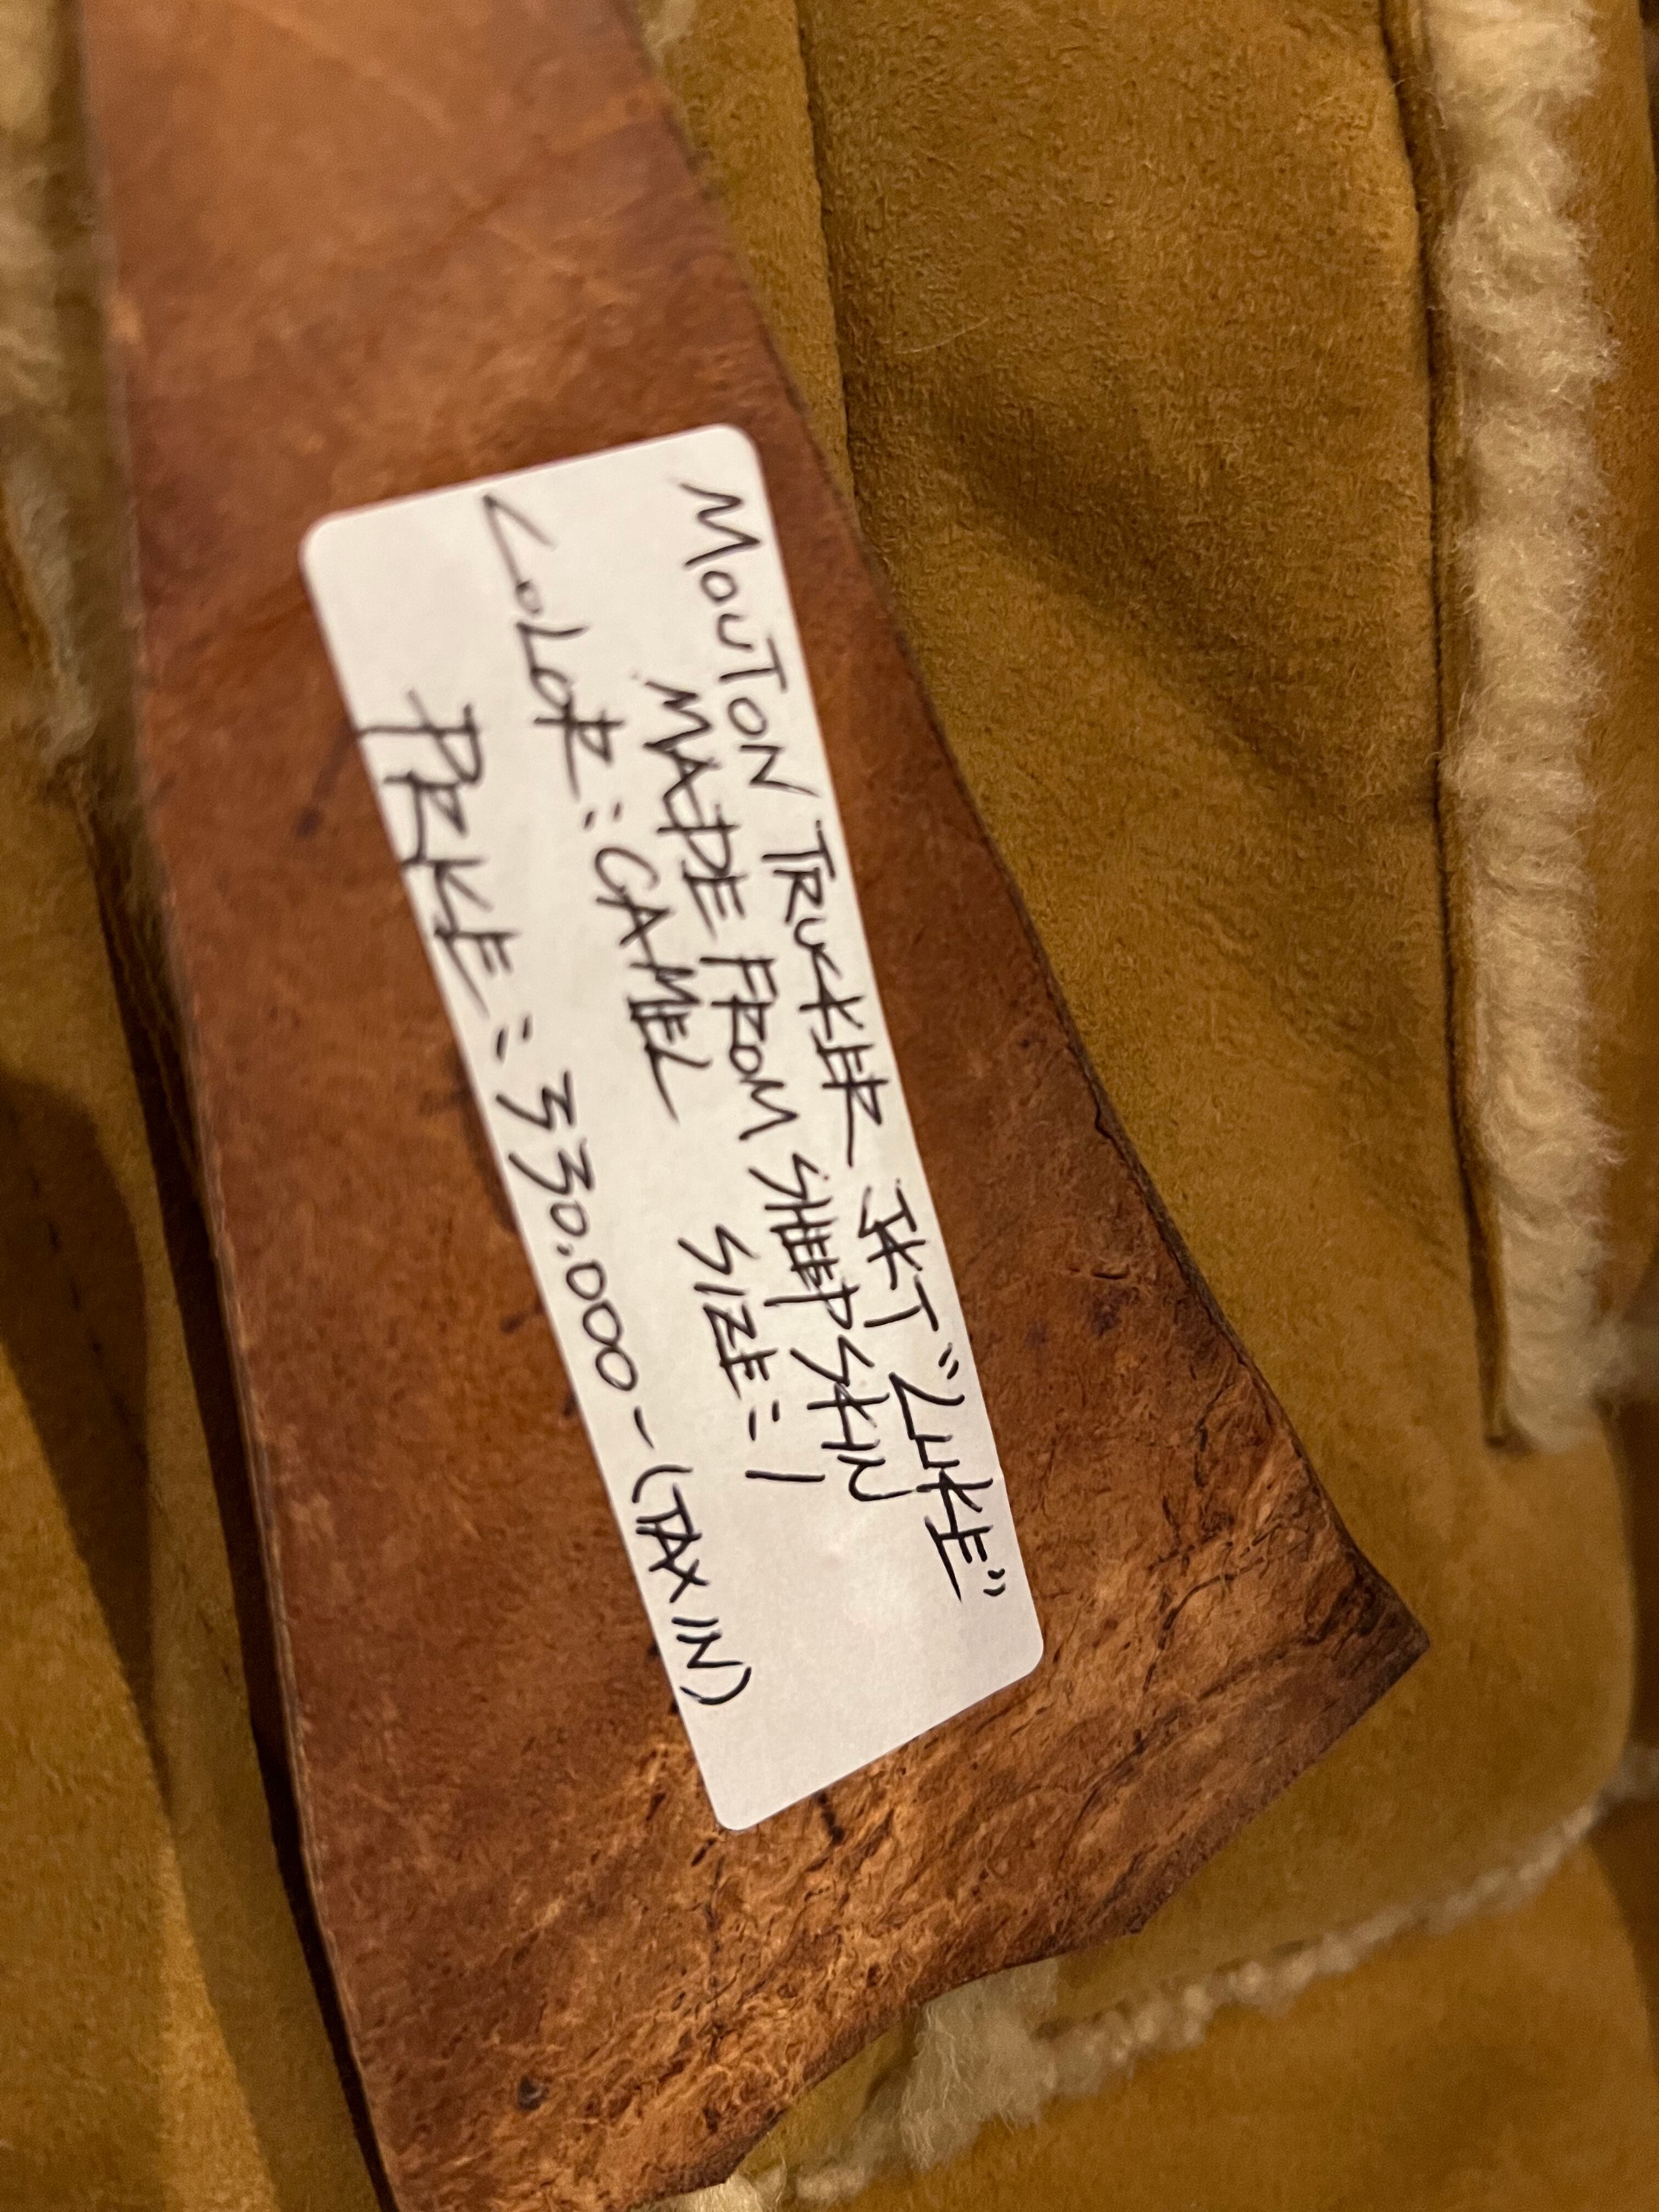 MOUTON TRUCKER JKT "LUKE"
MADE FROM SHEEPSKIN
COLOR : CAMEL SIZE : 1
PRICE : 330.000 - (TAX IN)